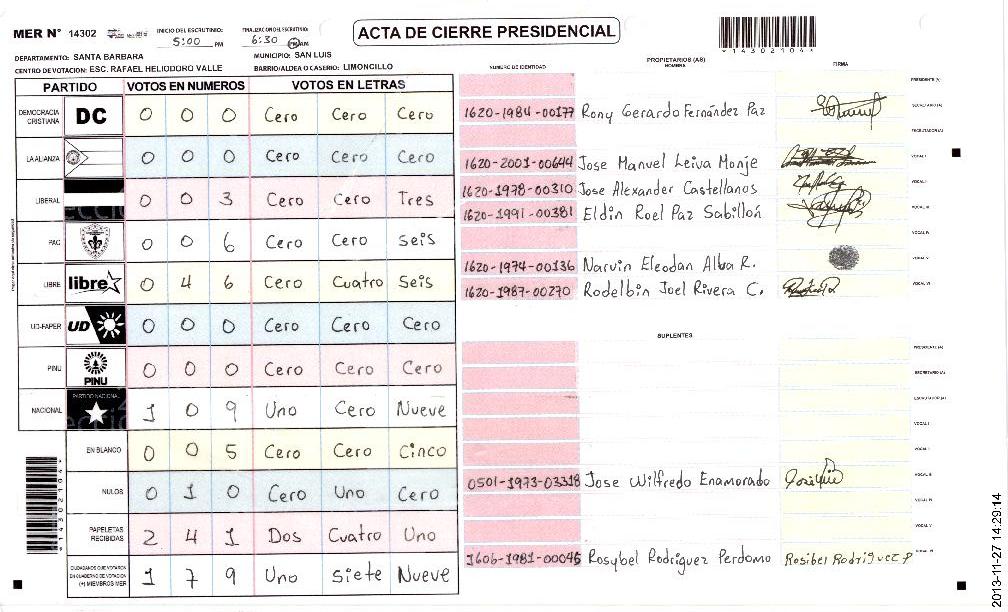 MER N° 14302
INICIO DEL ESCRUTINIO: 5:00 PM
FINALIZACION DEL ESCRUTINIO: 6:30 PM AM
ACTA DE CIERRE PRESIDENCIAL
*14302104*
DEPARTAMENTO: SANTA BARBARA
MUNICIPIO: SAN LUIS
CENTRO DE VOTACION: ESC. RAFAEL HELIODORO VALLE
BARRIO/ALDEA O CASERIO: LIMONCILLO
PARTIDO VOTOS EN NUMEROS VOTOS EN LETRAS
DEMOCRACIA CRISTIANA DC 0 0 0 Cero Cero Cero
LA ALIANZA 0 0 0 Cero Cero Cero
LIBERAL 0 0 3 Cero Cero Tres
PAC 0 0 6 Cero Cero Seis
LIBRE libre 0 4 6 Cero Cuatro Seis
UD-FAPER UD 0 0 0 Cero Cero Cero
PINU PINU 0 0 0 Cero Cero Cero
NACIONAL PARTIDO NACIONAL 1 0 9 Uno Cero Nueve
EN BLANCO 0 0 5 Cero Cero Cinco
NULOS 0 1 0 Cero Uno Cero
PAPELETAS RECIBIDAS 2 4 1 Dos Cuatro Uno
CIUDADANOS QUE VOTARON EN CUADERNO DE VOTACION (+) MIEMBROS MER 1 7 9 Uno Siete Nueve
*14302104*
PROPIETARIOS (AS)
NUMERO DE IDENTIDAD NOMBRE FIRMA
PRESIDENTE (A)
1620-1984-00177 Rony Gerardo Fernández Paz SECRETARIO (A)
ESCRUTADOR (A)
1620-2001-00644 Jose Manuel Leiva Monje VOCAL I
1620-1978-00310 Jose Alexander Castellanos
1620-1991-00381 Eldin Roel Paz Sabillón VOCAL III
VOCAL IV
1620-1974-00136 Narvin Eleodan Alba R. VOCAL V
1620-1987-00270 Rodelbin Joel Rivera C. VOCAL VI
SUPLENTES
PRESIDENTE (A)
SECRETARIO (A)
ESCRUTADOR (A)
VOCAL I
VOCAL II
0501-1973-03318 Jose Wilfredo Enamorado VOCAL III
VOCAL IV
VOCAL V
1606-1981-00045 Rosybel Rodriguez Perdomo Rosibel Rodriguez P VOCAL VI
2013-11-27 14:29:14